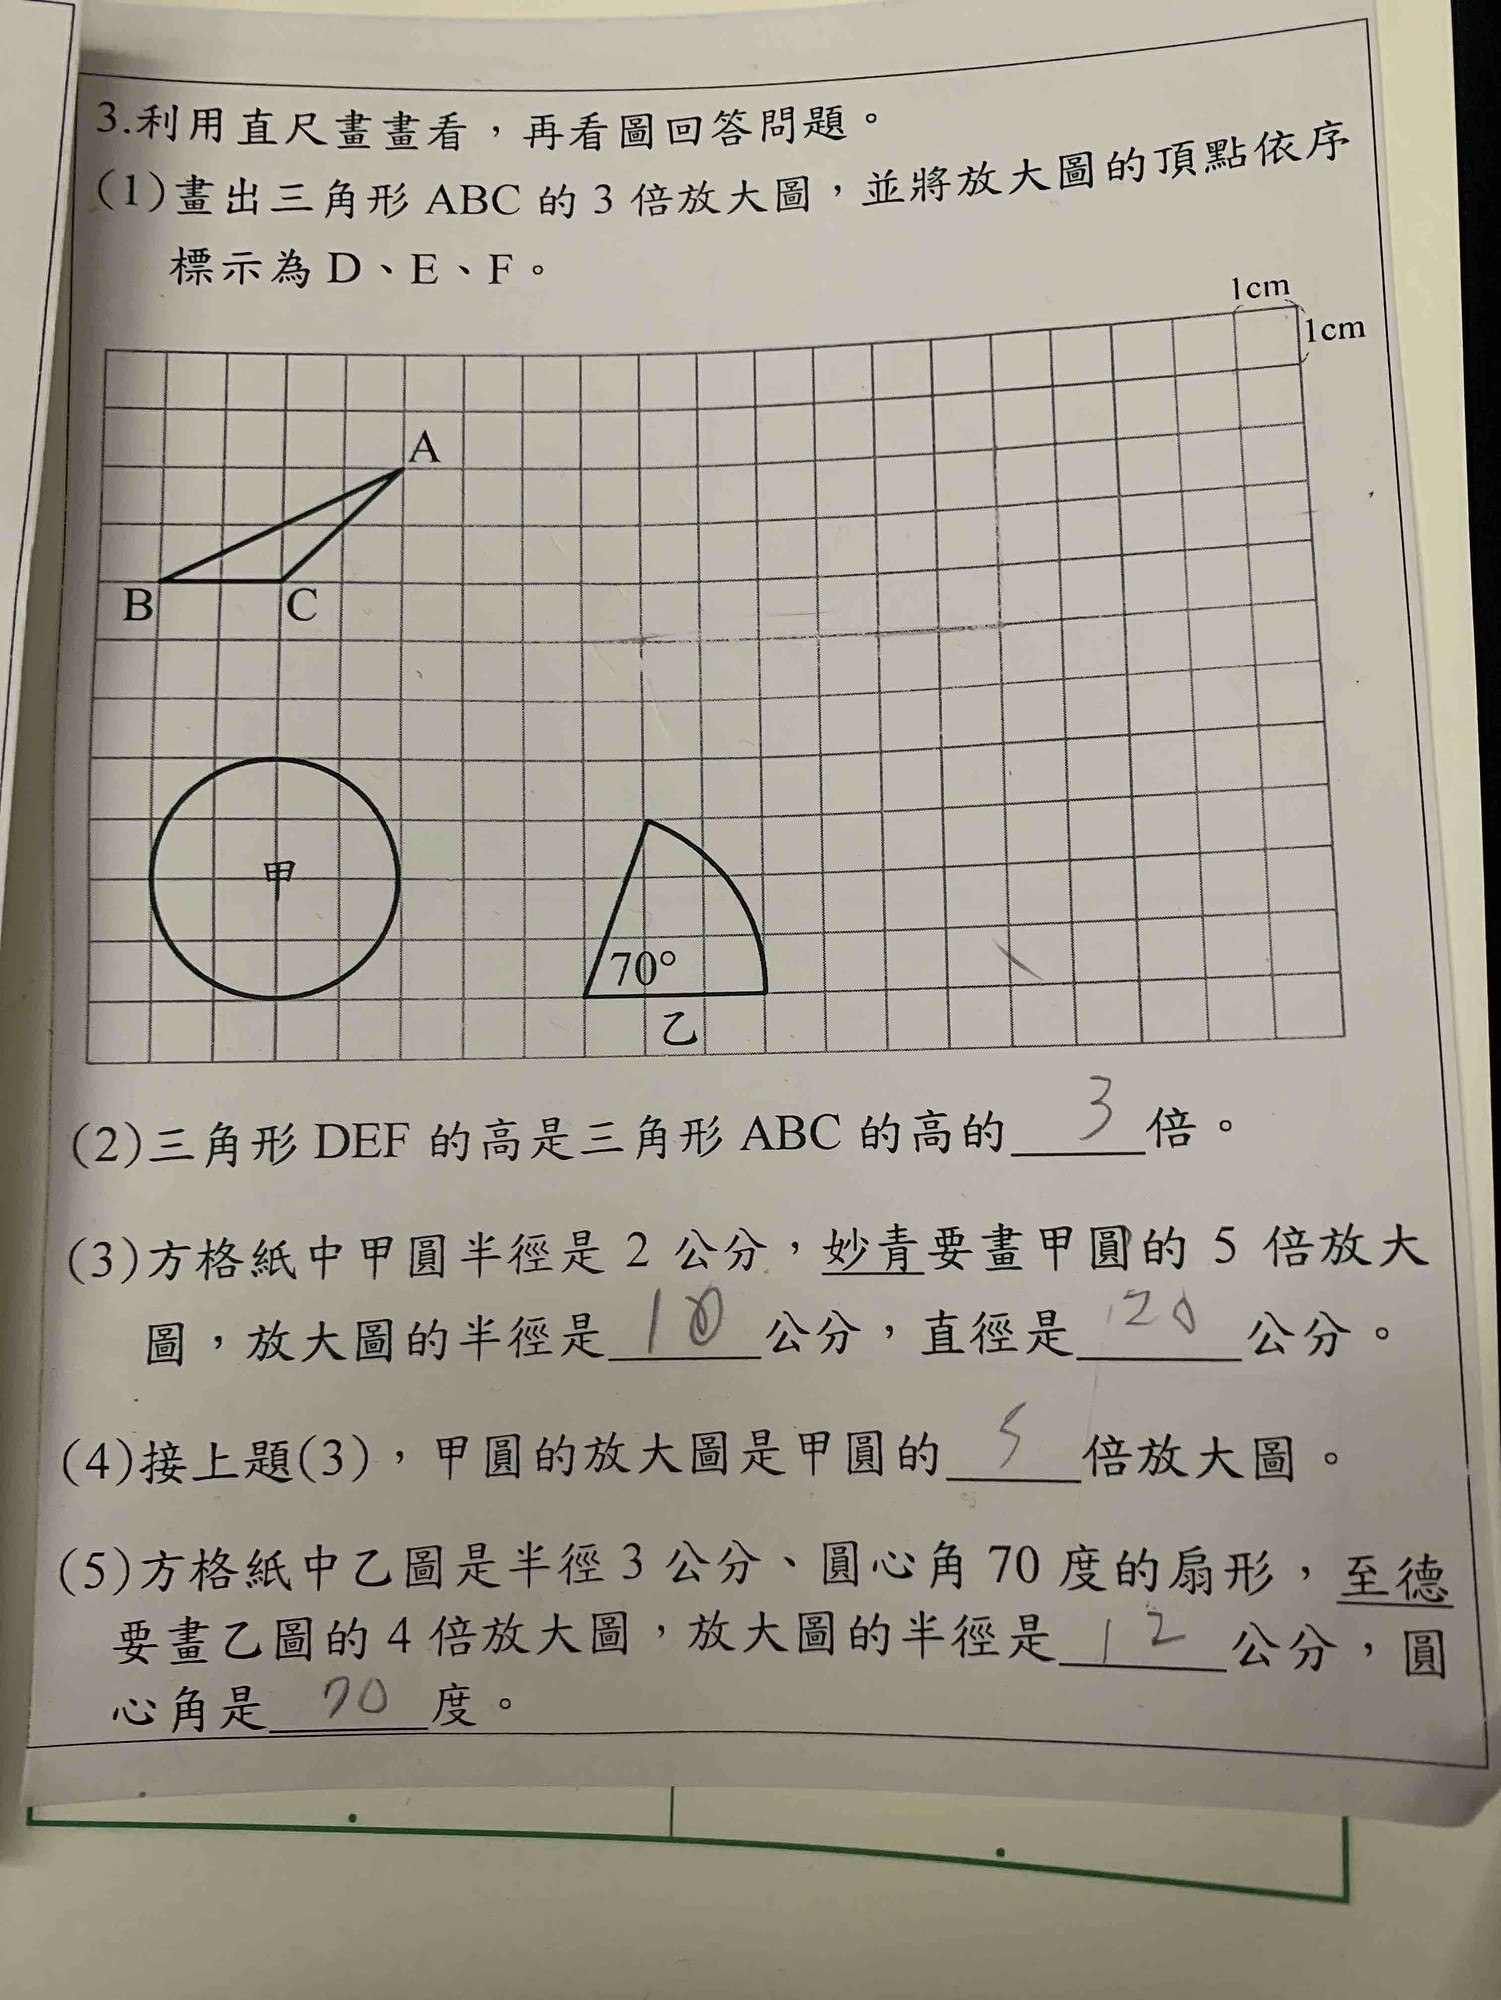 3.利用直尺畫畫看，再看圖回答問題。
(1)畫出三角形 ABC 的 3 倍放大圖，並將放大圖的頂點依序
標示為 D、E、F。
1cm
1cm
A
B
C
甲
70°
乙
(2)三角形 DEF 的高是三角形 ABC 的高的 3 倍。
(3)方格紙中甲圓半徑是 2 公分，妙青要畫甲圓的 5 倍放大
圖，放大圖的半徑是 10 公分，直徑是 20 公分。
(4)接上題(3)，甲圓的放大圖是甲圓的 5 倍放大圖。
(5)方格紙中乙圖是半徑 3 公分、圓心角 70 度的扇形，至德
要畫乙圖的 4 倍放大圖，放大圖的半徑是 12 公分，圓
心角是 70 度。